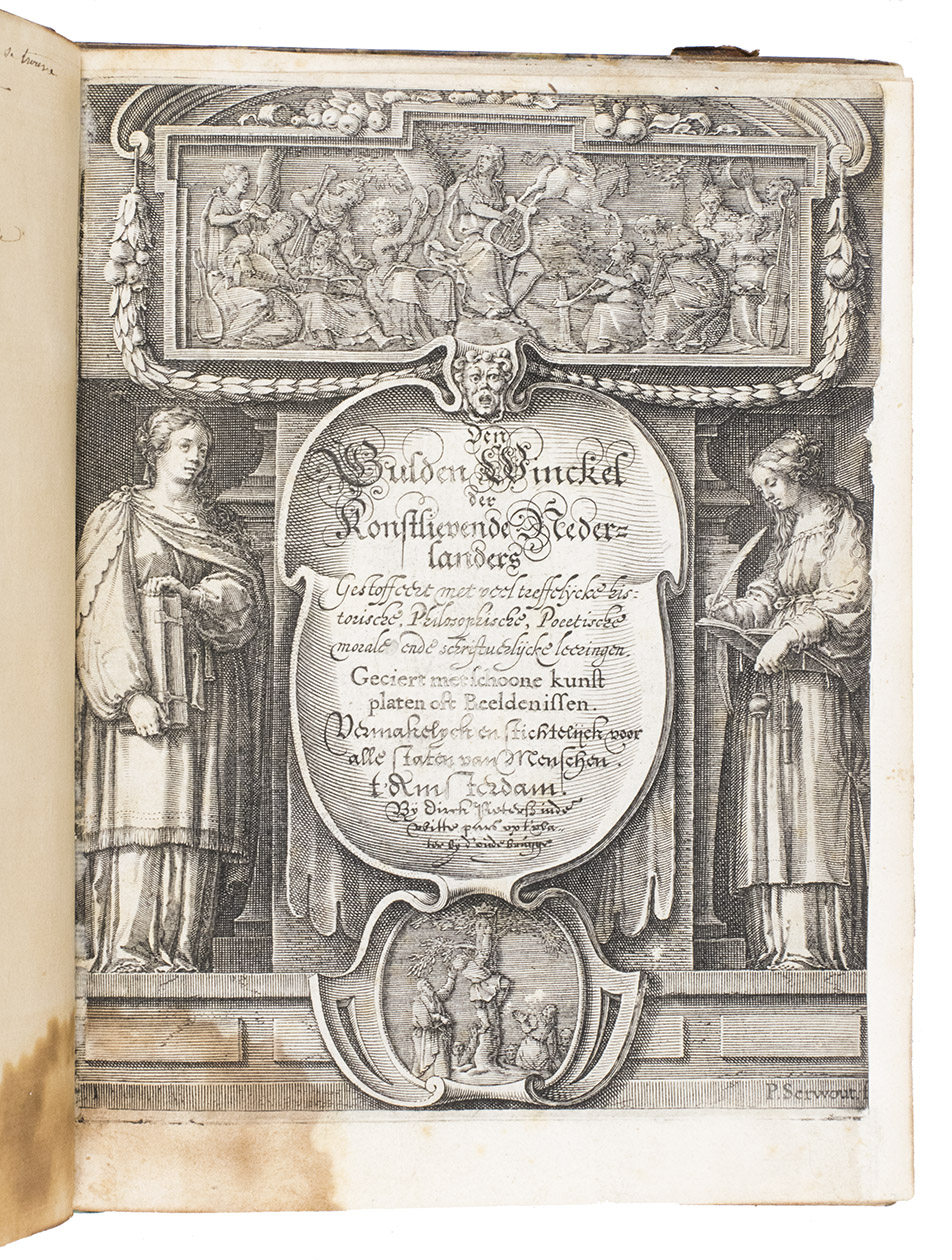 se trouve
Den
Gulden Winckel
der
Konstlievende Neder=
landers
Gestoffeert met veel treffelycke his=
torische, Philosophische, Poeetische
morale ende schriftuerlijcke leeringen.
Geciert met schoone kunst
platen oft Beeldenissen.
Vermakelyck en stichtelijck voor
alle staten van Menschen.
t'Amsterdam.
By Dirck Pietersz inde
witte pers op t wa-
ter by d'oude brugge
P. Serwout. f